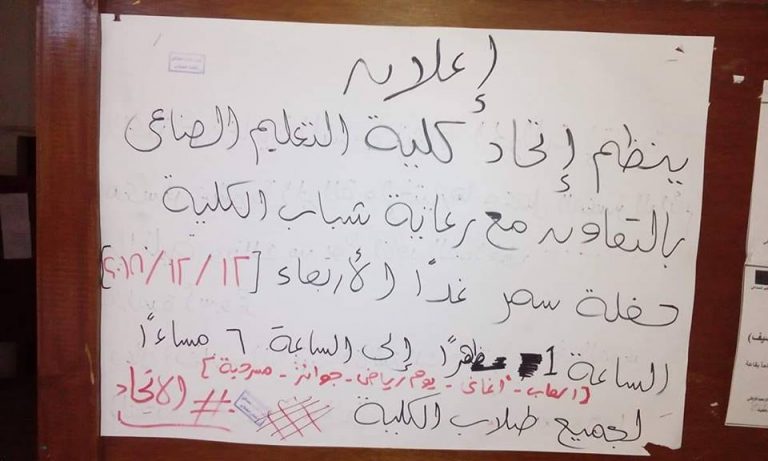 إعلان
ينظم إتحاد كلية التعليم الصناعى
بالتعاون مع رعاية شباب الكلية
حفلة سمر غداً الأربعاء [١٢/١٢/٢٠١٨]
الساعة 1 ظهراً إلى الساعة ٦ مساءاً
[العاب - أغانى - يوم رياضى - جوائز - مسرحية]
لجميع طلاب الكلية
# الاتحاد